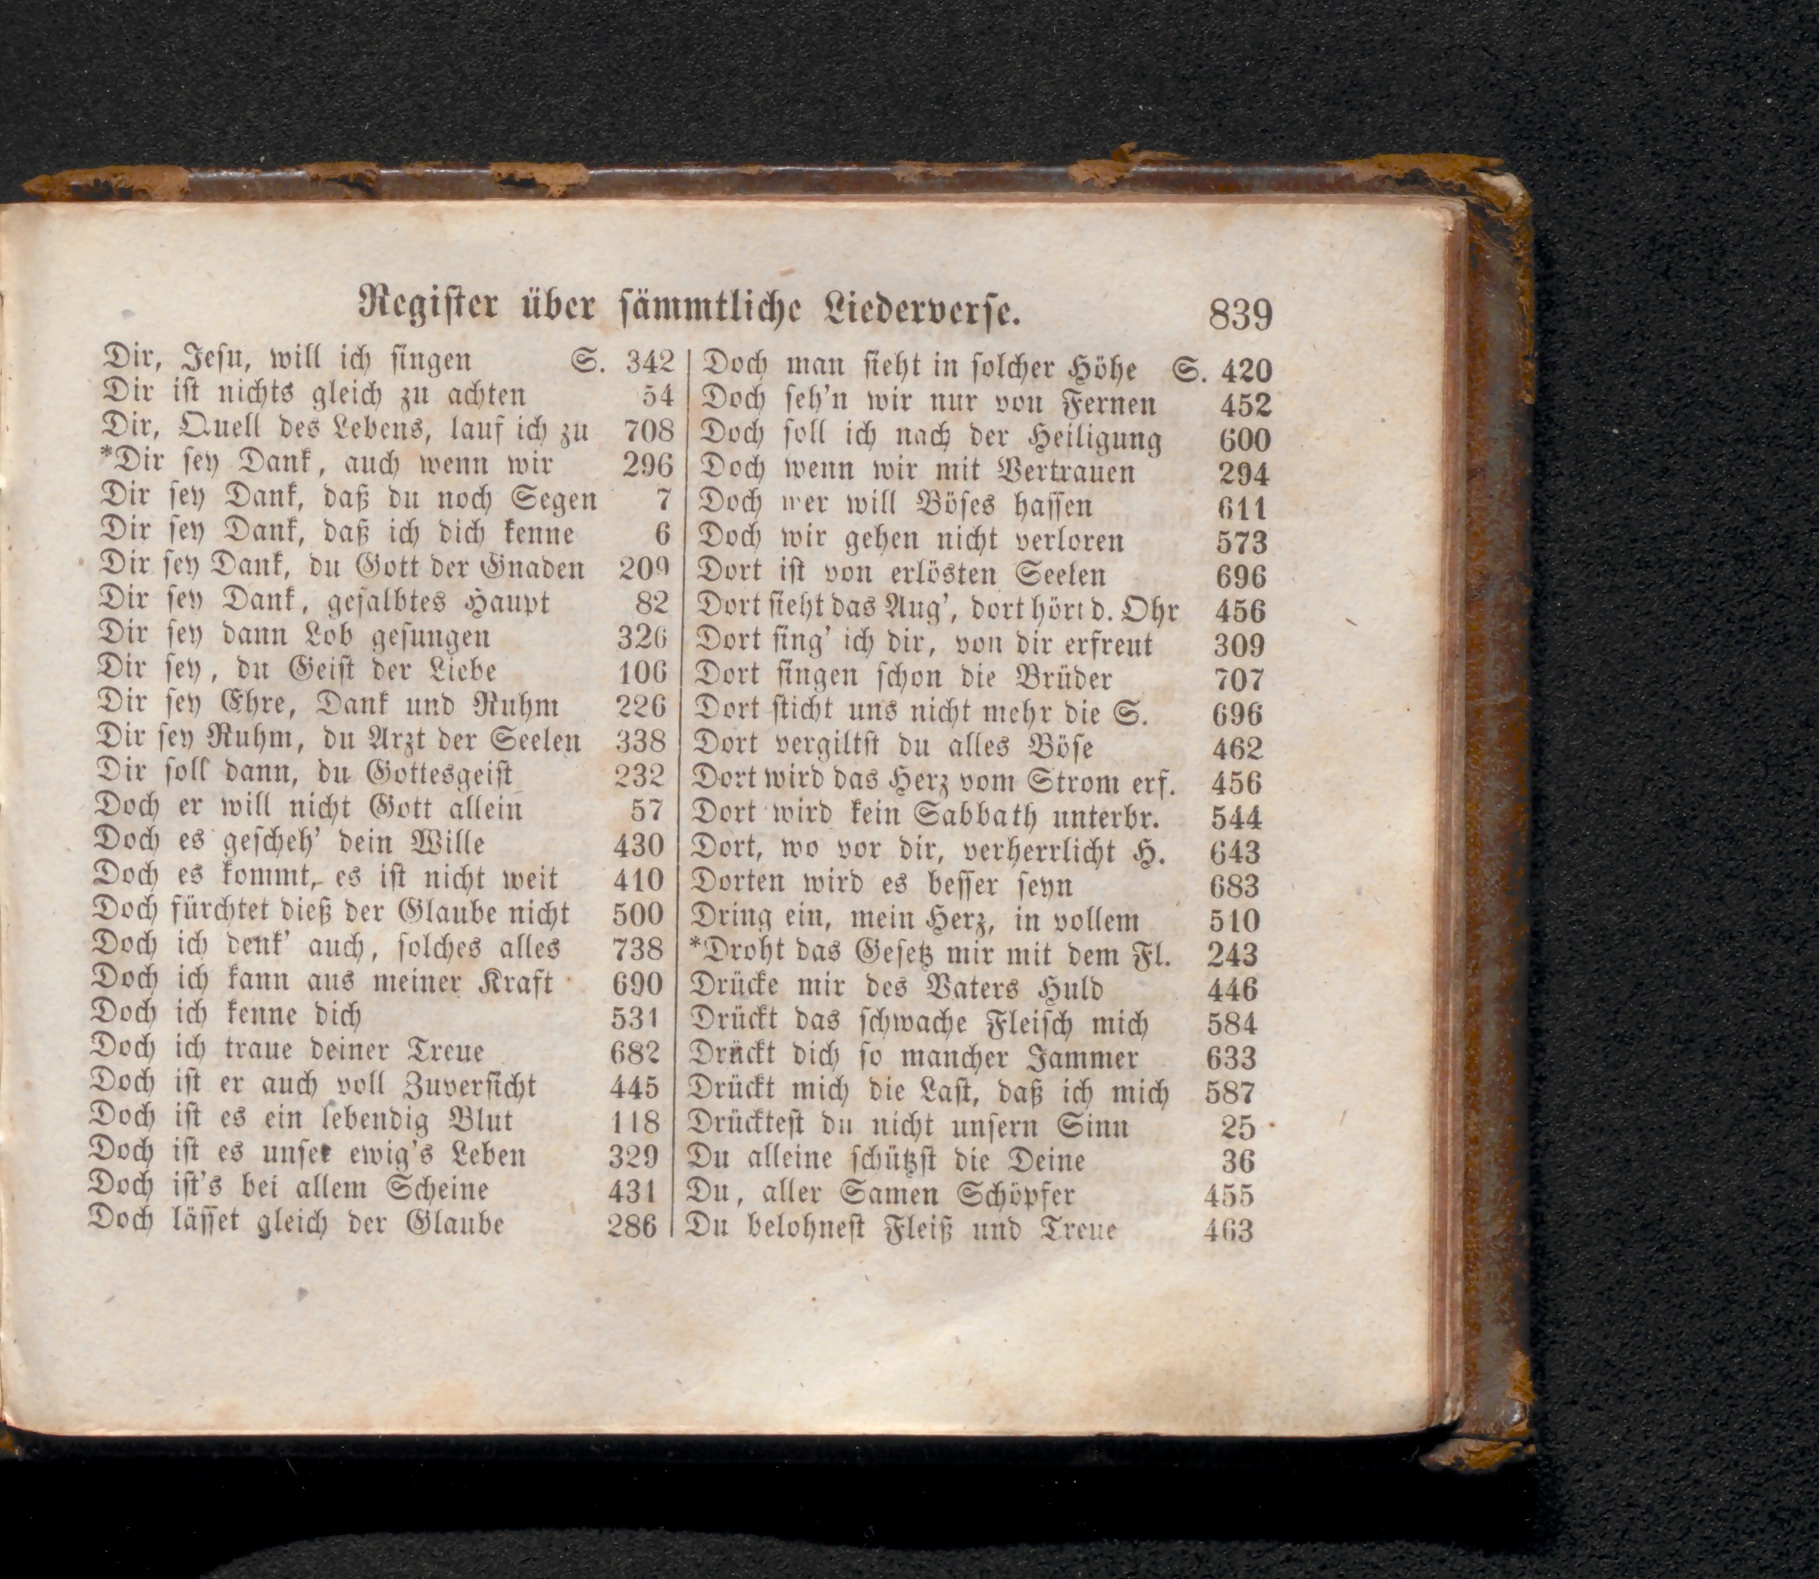 Register über sämmtliche Liederverse. 839
Dir, Jesu, will ich singen S. 342
Dir ist nichts gleich zu achten 54
Dir, Quell des Lebens, lauf ich zu 708
*Dir sey Dank, auch wenn wir 296
Dir sey Dank, daß du noch Segen 7
Dir sey Dank, daß ich dich kenne 6
Dir sey Dank, du Gott der Gnaden 209
Dir sey Dank, gesalbtes Haupt 82
Dir sey dann Lob gesungen 326
Dir sey, du Geist der Liebe 106
Dir sey Ehre, Dank und Ruhm 226
Dir sey Ruhm, du Arzt der Seelen 338
Dir soll dann, du Gottesgeist 232
Doch er will nicht Gott allein 57
Doch es gescheh' dein Wille 430
Doch es kommt, es ist nicht weit 410
Doch fürchtet dieß der Glaube nicht 500
Doch ich denk' auch, solches alles 738
Doch ich kann aus meiner Kraft 690
Doch ich kenne dich 531
Doch ich traue deiner Treue 682
Doch ist er auch voll Zuversicht 445
Doch ist es ein lebendig Blut 118
Doch ist es unser ewig's Leben 329
Doch ist's bei allem Scheine 431
Doch lässet gleich der Glaube 286
Doch man sieht in solcher Höhe S. 420
Doch seh'n wir nur von Fernen 452
Doch soll ich nach der Heiligung 600
Doch wenn wir mit Vertrauen 294
Doch wer will Böses hassen 611
Doch wir gehen nicht verloren 573
Dort ist von erlösten Seelen 696
Dort sieht das Aug', dort hört d. Ohr 456
Dort sing' ich dir, von dir erfreut 309
Dort singen schon die Brüder 707
Dort sticht uns nicht mehr die S. 696
Dort vergiltst du alles Böse 462
Dort wird das Herz vom Strom erf. 456
Dort wird kein Sabbath unterbr. 544
Dort, wo vor dir, verherrlicht H. 643
Dorten wird es besser seyn 683
Dring ein, mein Herz, in vollem 510
*Droht das Gesetz mir mit dem Fl. 243
Drücke mir des Vaters Huld 446
Drückt das schwache Fleisch mich 584
Drückt dich so mancher Jammer 633
Drückt mich die Last, daß ich mich 587
Drücktest du nicht unsern Sinn 25
Du alleine schützst die Deine 36
Du, aller Samen Schöpfer 455
Du belohnest Fleiß und Treue 463